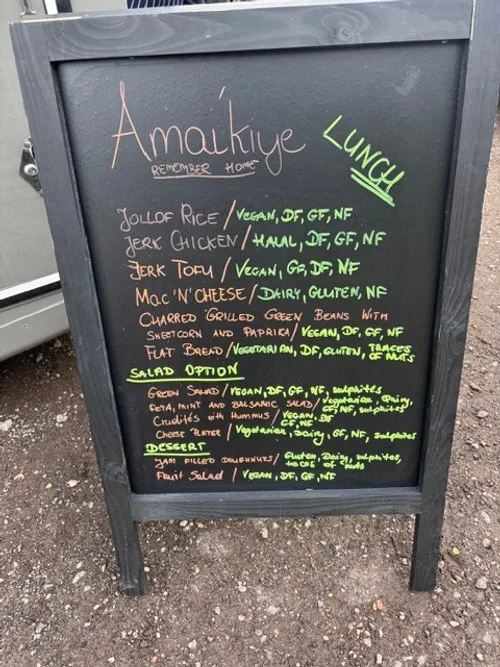 Amaikiye
REMEMBER HOME
LUNCH
JOLLOF RICE / VEGAN, DF, GF, NF
JERK CHICKEN / HALAL, DF, GF, NF
JERK TOFU / VEGAN, GF, DF, NF
MAC 'N' CHEESE / DAIRY, GLUTEN, NF
CHARRED GRILLED GREEN BEANS WITH
SWEETCORN AND PAPRIKA / VEGAN, DF, GF, NF
FLAT BREAD / VEGETARIAN, DF, GLUTEN, TRACES
OF NUTS
SALAD OPTION
GREEN SALAD / VEGAN, DF, GF, NF, sulphites
FETA, MINT AND BALSAMIC SALAD / Vegetarian, Dairy,
GF, NF, sulphites
Crudités with Hummus / VEGAN, DF
GF, NF
CHEESE PLATTER / Vegetarian, Dairy, GF, NF, sulphites
DESSERT
JAM FILLED DOUGHNUTS / Gluten, Dairy, sulphites,
of nuts
Fruit Salad / VEGAN, DF, GF, NF